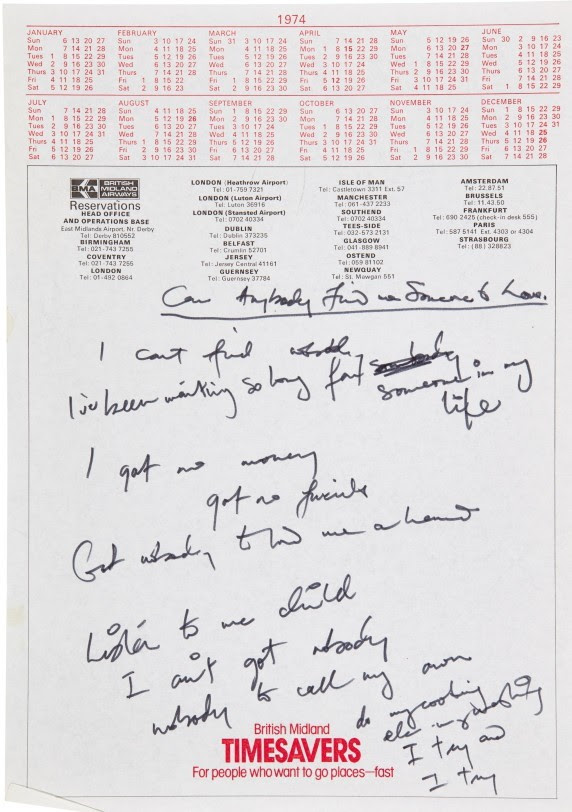 1974
JANUARY
Sun 6 13 20 27
Mon 7 14 21 28
Tues 1 8 15 22 29
Wed 2 9 16 23 30
Thurs 3 10 17 24 31
Fri 4 11 18 25
Sat 5 12 19 26
FEBRUARY
Sun 3 10 17 24
Mon 4 11 18 25
Tues 5 12 19 26
Wed 6 13 20 27
Thurs 7 14 21 28
Fri 1 8 15 22
Sat 2 9 16 23
MARCH
Sun 31 3 10 17 24
Mon 4 11 18 25
Tues 5 12 19 26
Wed 6 13 20 27
Thurs 7 14 21 28
Fri 1 8 15 22 29
Sat 2 9 16 23 30
APRIL
Sun 7 14 21 28
Mon 1 8 15 22 29
Tues 2 9 16 23 30
Wed 3 10 17 24
Thurs 4 11 18 25
Fri 5 12 19 26
Sat 6 13 20 27
MAY
Sun 5 12 19 26
Mon 6 13 20 27
Tues 7 14 21 28
Wed 1 8 15 22 29
Thurs 2 9 16 23 30
Fri 3 10 17 24 31
Sat 4 11 18 25
JUNE
Sun 30 2 9 16 23
Mon 3 10 17 24
Tues 4 11 18 25
Wed 5 12 19 26
Thurs 6 13 20 27
Fri 7 14 21 28
Sat 1 8 15 22 29
JULY
Sun 7 14 21 28
Mon 1 8 15 22 29
Tues 2 9 16 23 30
Wed 3 10 17 24 31
Thurs 4 11 18 25
Fri 5 12 19 26
Sat 6 13 20 27
AUGUST
Sun 4 11 18 25
Mon 5 12 19 26
Tues 6 13 20 27
Wed 7 14 21 28
Thurs 1 8 15 22 29
Fri 2 9 16 23 30
Sat 3 10 17 24 31
SEPTEMBER
Sun 1 8 15 22 29
Mon 2 9 16 23 30
Tues 3 10 17 24
Wed 4 11 18 25
Thurs 5 12 19 26
Fri 6 13 20 27
Sat 7 14 21 28
OCTOBER
Sun 6 13 20 27
Mon 7 14 21 28
Tues 1 8 15 22 29
Wed 2 9 16 23 30
Thurs 3 10 17 24 31
Fri 4 11 18 25
Sat 5 12 19 26
NOVEMBER
Sun 3 10 17 24
Mon 4 11 18 25
Tues 5 12 19 26
Wed 6 13 20 27
Thurs 7 14 21 28
Fri 1 8 15 22 29
Sat 2 9 16 23 30
DECEMBER
Sun 1 8 15 22 29
Mon 2 9 16 23 30
Tues 3 10 17 24 31
Wed 4 11 18 25
Thurs 5 12 19 26
Fri 6 13 20 27
Sat 7 14 21 28
BMA BRITISH MIDLAND AIRWAYS
Reservations
HEAD OFFICE
AND OPERATIONS BASE
East Midlands Airport, Nr. Derby
Tel: Derby 810552
BIRMINGHAM
Tel: 021-743 7255
COVENTRY
Tel: 021-743 7255
LONDON
Tel: 01-492 0864
LONDON (Heathrow Airport)
Tel: 01-759 7321
LONDON (Luton Airport)
Tel: Luton 36916
LONDON (Stansted Airport)
Tel: 0702 40334
DUBLIN
Tel: Dublin 373235
BELFAST
Tel: Crumlin 52701
JERSEY
Tel: Jersey Central 41161
GUERNSEY
Tel: Guernsey 37784
ISLE OF MAN
Tel: Castletown 3311 Ext. 57
MANCHESTER
Tel: 061-437 2233
SOUTHEND
Tel: 0702 40334
TEES-SIDE
Tel: 032-573 2131
GLASGOW
Tel: 041-889 8941
OSTEND
Tel: 059 81102
NEWQUAY
Tel: St. Mawgan 551
AMSTERDAM
Tel: 22.87.51
BRUSSELS
Tel: 11.43.50
FRANKFURT
Tel: 690 2425 (check-in desk 555)
PARIS
Tel: 587 5141 Ext. 4303 or 4304
STRASBOURG
Tel: (88) 328823
Can Anybody Find me Someone to Love.
I cant find nobody
I've been waiting so long for somebody someone in my
life
I got no money
got no friends
Got nobody to lend me a hand
Listen to me child
I ain't got nobody
nobody to call my own
do my cooking
else my washing
I try and
I try
British Midland
TIMESAVERS
For people who want to go places—fast